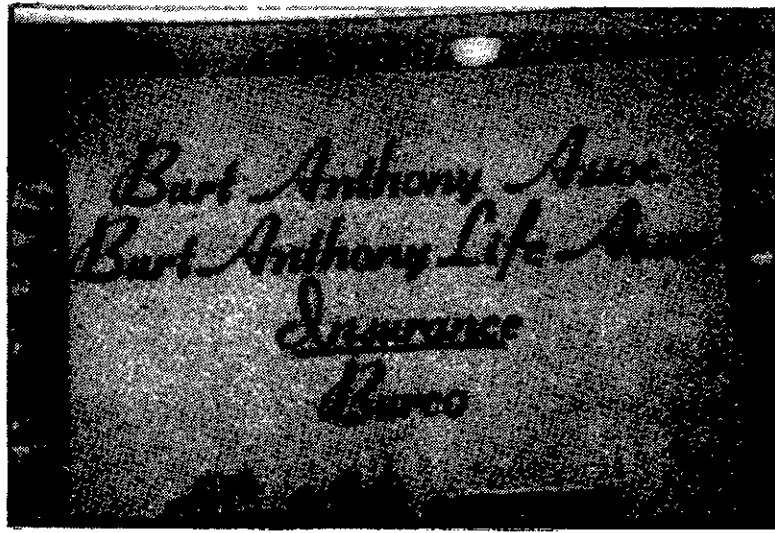 Burt Anthony Assoc.
Burt Anthony Life
Insurance